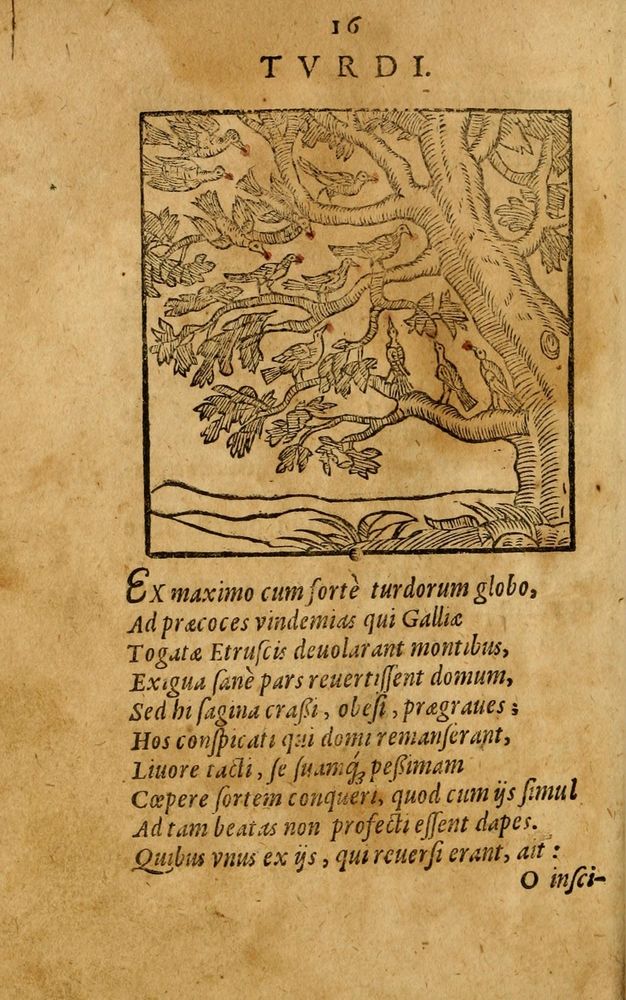 16
TVRDI.
EX maximo cum fortè turdorum globo,
Ad præcoces vindemias qui Galliæ
Togatæ Etruſcis deuolarant montibus,
Exigua ſanè pars reuertiſſent domum,
Sed hi ſagina craßi, obeſi, prægraues;
Hos conſpicati qui domi remanſerant,
Liuore tacti, ſe ſuamq́; peßimam
Cœpere ſortem conqueri, quod cum ijs ſimul
Ad tam beatas non profecti eſſent dapes.
Quibus vnus ex ijs, qui reuerſi erant, ait:
O inſci-